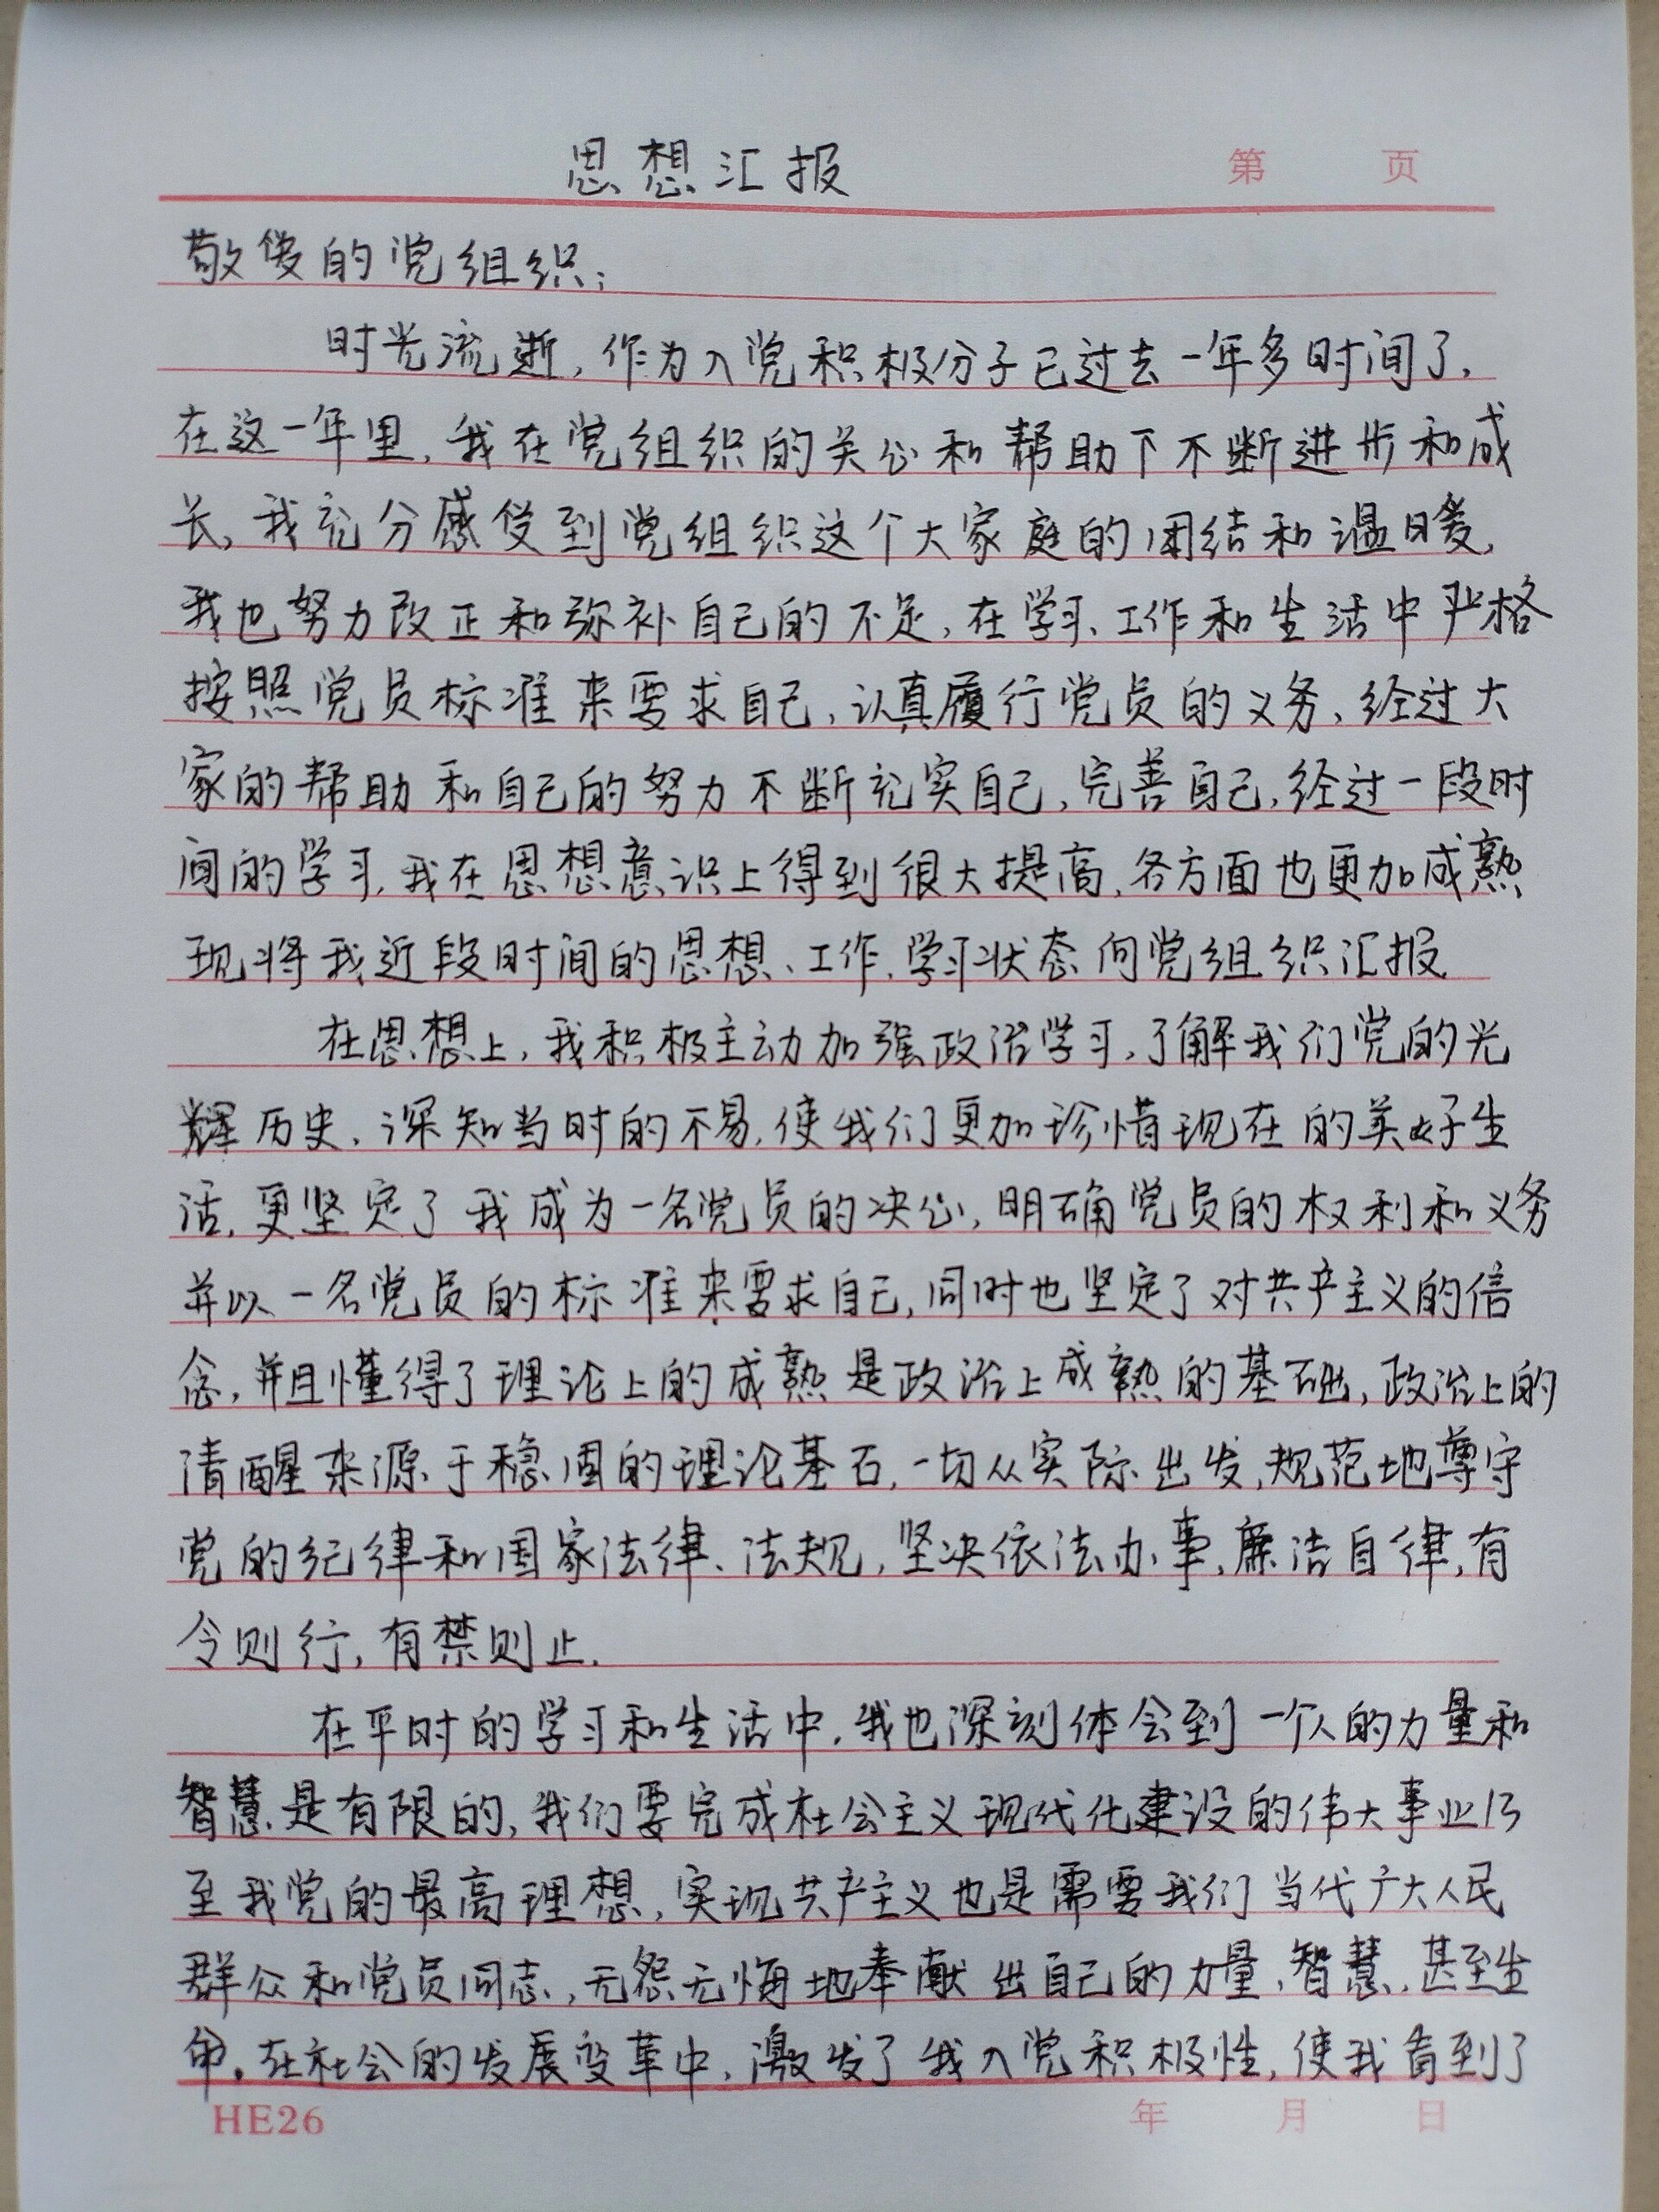 思想汇报
第 页
敬爱的党组织:
时光流逝,作为入党积极分子已过去一年多时间了,
在这一年里,我在党组织的关心和帮助下不断进步和成
长,我充分感受到党组织这个大家庭的团结和温暖,
我也努力改正和弥补自己的不足,在学习、工作和生活中严格
按照党员标准来要求自己,认真履行党员的义务,经过大
家的帮助和自己的努力不断充实自己,完善自己,经过一段时
间的学习,我在思想意识上得到很大提高,各方面也更加成熟
现将我近段时间的思想、工作、学习状态向党组织汇报
在思想上,我积极主动加强政治学习,了解我们党的光
辉历史,深知当时的不易,使我们更加珍惜现在的美好生
活,更坚定了我成为一名党员的决心,明确党员的权利和义务
并以一名党员的标准来要求自己,同时也坚定了对共产主义的信
念,并且懂得了理论上的成熟是政治上成熟的基础,政治上的
清醒来源于稳固的理论基石,一切从实际出发,规范地尊守
党的纪律和国家法律、法规,坚决依法办事,廉洁自律,有
令则行,有禁则止.
在平时的学习和生活中,我也深刻体会到一个人的力量和
智慧是有限的,我们要完成社会主义现代化建设的伟大事业乃
至我党的最高理想,实现共产主义也是需要我们当代广大人民
群众和党员同志,无怨无悔地奉献出自己的力量、智慧,甚至生
命。在社会的发展变革中,激发了我入党积极性,使我看到了
HE26
年 月 日